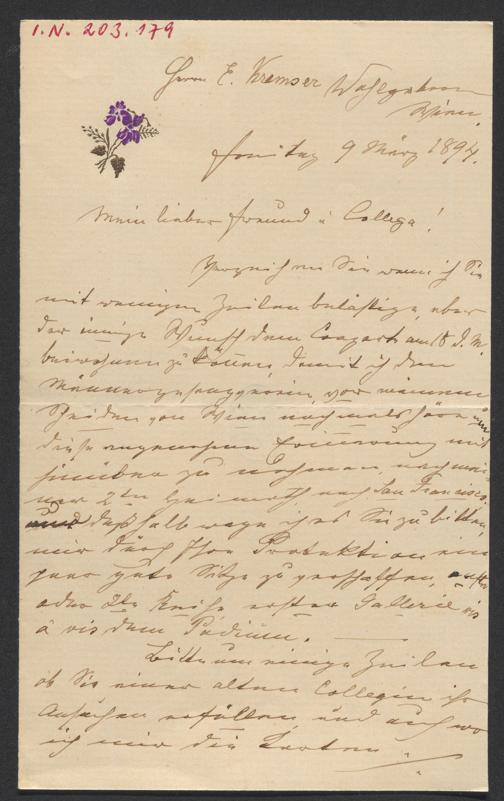 I.N. 203.179
Herrn E. Kremser Wohlgeboren
Wien.
Freitag 9 März 1894.
Mein lieber Freund u Collega!
Verzeihen Sie wenn ich Sie
mit wenigen Zeilen belästige, aber
der innige Wunsch dem Conzert am 18 d. M.
beiwohnen zu können, damit ich den
Männergesangverein, vor meinem
Scheiden von Wien nochmals höre um
diese angenehme Erinnerung mit
hinüber zu nehmen, nach mei-
ner 2ten Heimath nach San Francisco.
und deßhalb wage ich es Sie zu bitten,
mir durch Ihre Protektion ein
paar gute Sitze zu verschaffen, erste
oder 2te Reihe erster Gallerie vis
à vis dem Podium.
Bitte um einige Zeilen
ob Sie einer alten Collegin ihr
Ansuchen erfüllen, und auch wo
ich mir die Karten